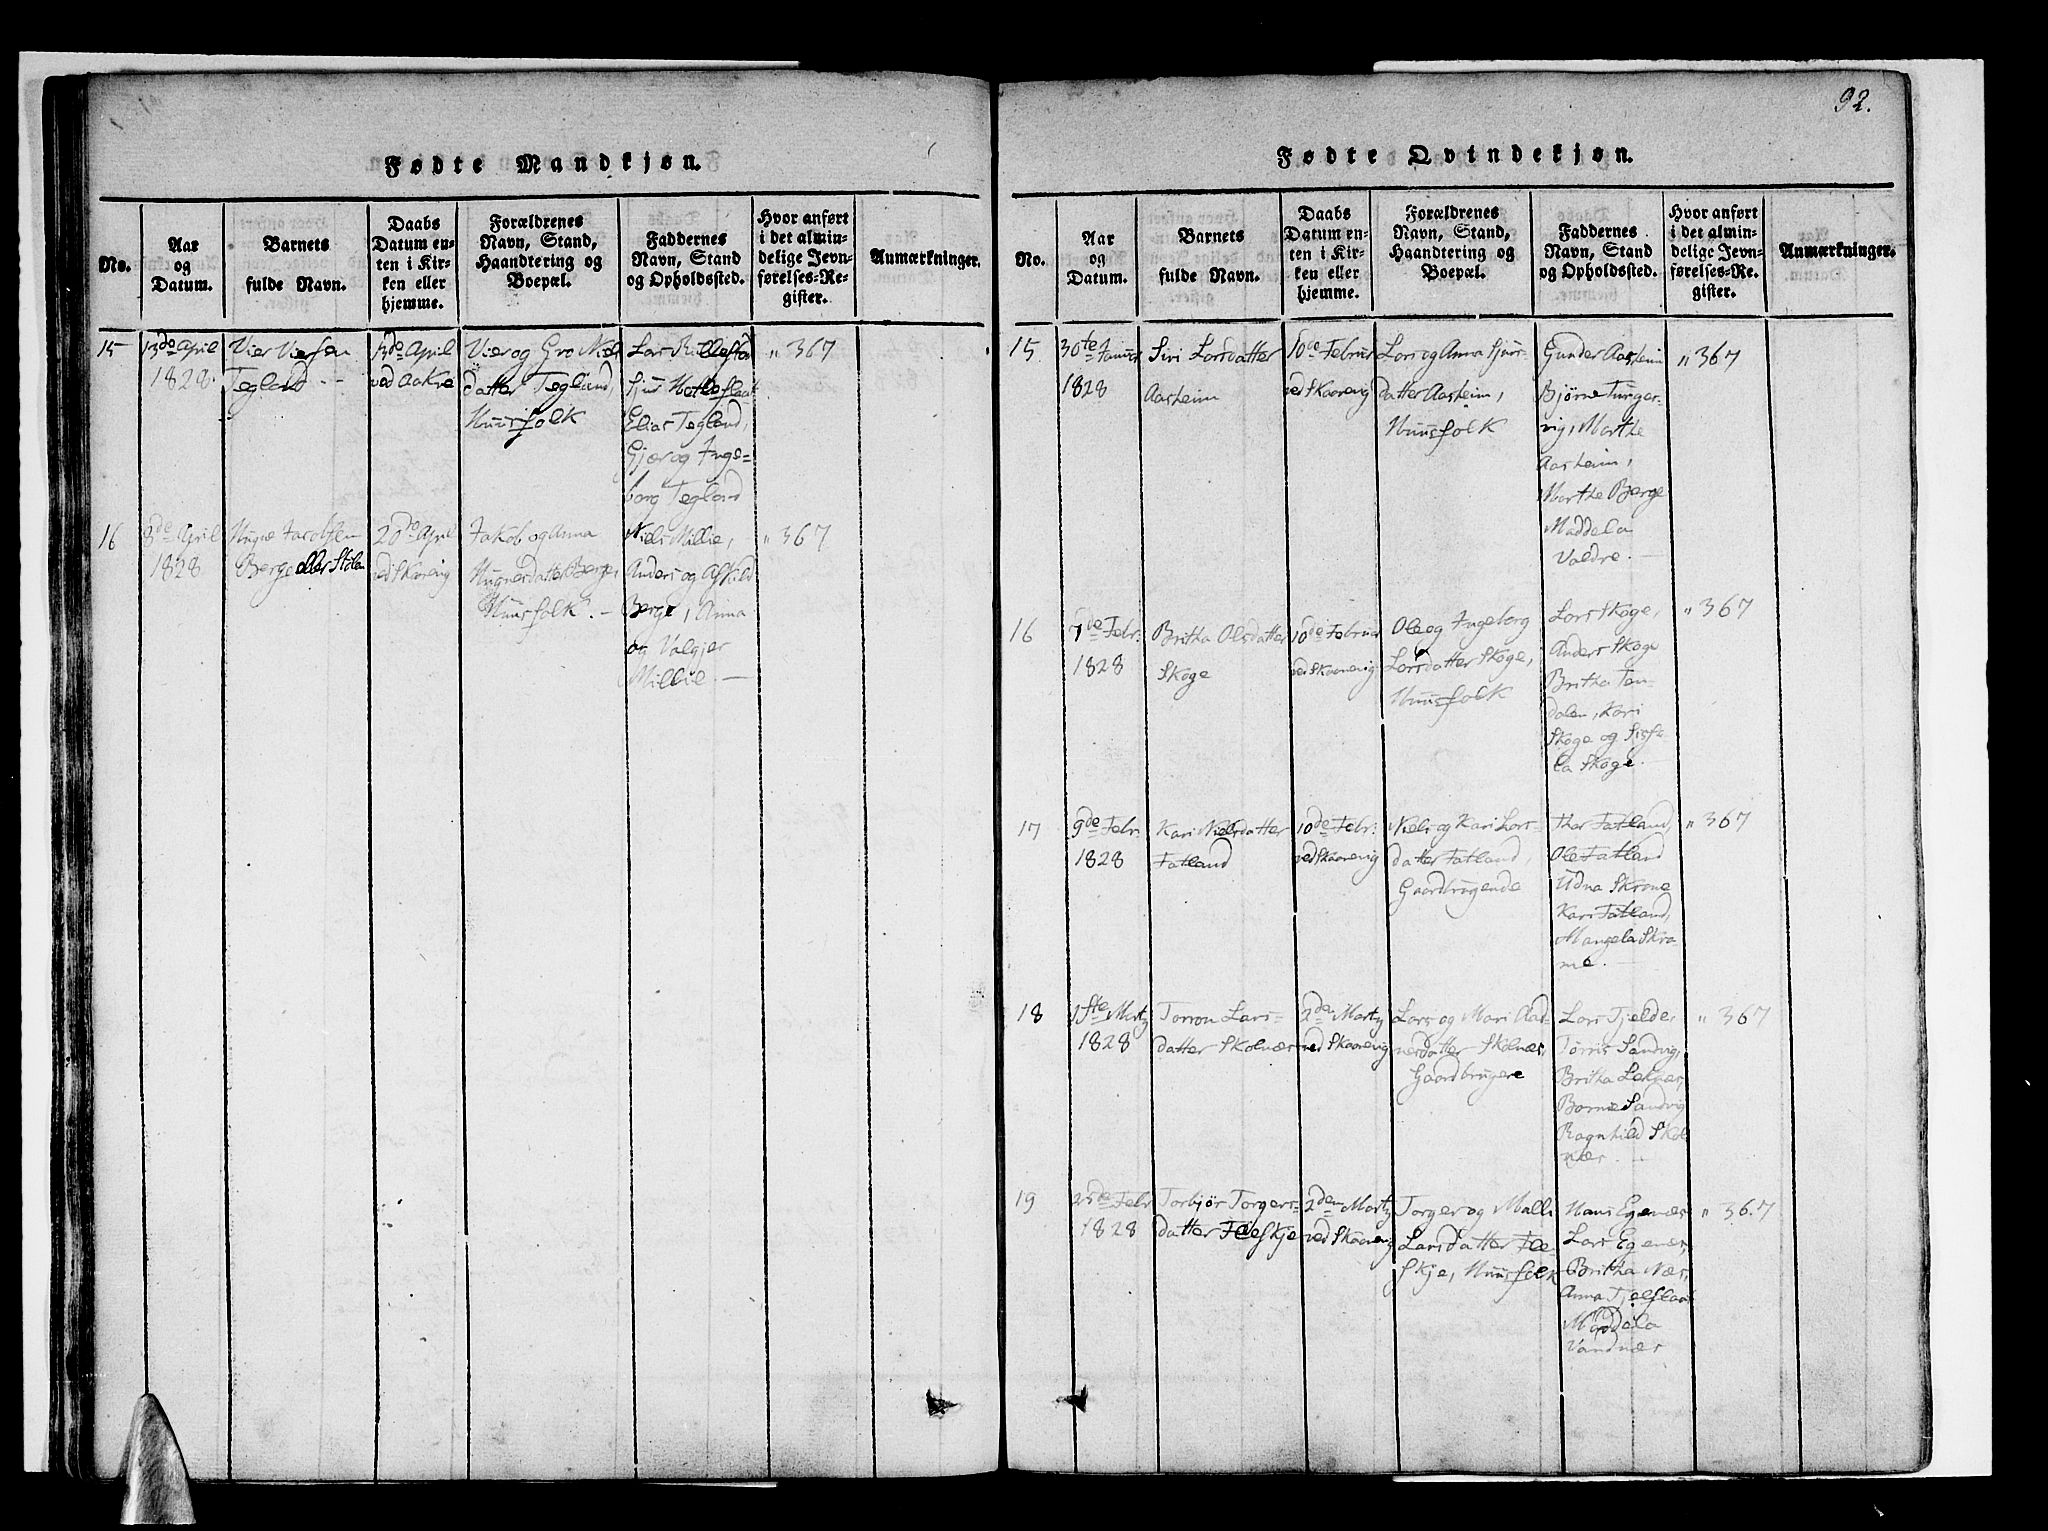 92.
Fødte Mandkjøn.
No.
Aar
og
Datum.
Barnets
fulde Navn.
Daabs
Datum en-
ten i Kir-
ken eller
hjemme.
Forældrenes
Navn, Stand,
Haandtering og
Boepæl.
Faddernes
Navn, Stand
og Opholdssted.
Hvor anført
i det almin-
delige Jevn-
førelses-Re-
gister.
Anmærkninger.
15
13de April
1828.
Vier Viersen
Tegland
13de April
ved Aakre
Vier og Gro Niels
datter Tegland,
Huusfolk
Lars
Elias Tegland,
Gjær og Inge-
borg Tegland
" 367
16
8de April
1828
Jacobsen
Berge eller Stölen
20de April
ved Skaanevig
Jakob og Anna
Berge,
Huusfolk.
Niels Millie,
Anders og
Berge, Anna
og Valgjer
Millie.
" 367
Fødte Qvindekjøn.
No.
Aar
og
Datum.
Barnets
fulde Navn.
Daabs
Datum en-
ten i Kir-
ken eller
hjemme.
Forældrenes
Navn, Stand,
Haandtering og
Boepæl.
Faddernes
Navn, Stand
og Opholdssted.
Hvor anført
i det almin-
delige Jevn-
førelses-Re-
gister.
Anmærkninger.
15
30te Januar
1828
Siri Larsdatter
Aasheim
10de Februar
ved Skaanevig
Lars og Anna Sjurs-
datter Aasheim,
Huusfolk
Gunder Aasheim
Bjørne Tunger-
vig, Marthe
Aasheim,
Marthe Berge
Maddela
Valdre.
" 367
16
7de Febr:
1828
Britha Olsdatter
Skoge
10de Februar
ved Skaanevig
Ole og Ingeborg
Larsdatter Skoge,
Huusfolk
Lars Skoge,
Anders Skoge
Britha Ten-
dalen, Kari
Skoge og Sisse-
la Skoge.
" 367
17
9de Febr:
1828
Kari Nielsdatter
Fatland
10de Febr:
ved Skaanevig
Niels og Kari Lars-
datter Fatland,
Gaardbrugende
Thor Fatland,
Ole Fatland
Udna Skrone
Kari Fatland,
Mangela Skro
ne.
" 367
18
1ste Marty
1828
Torron Lars-
datter Skolnæs
2den Marty
ved Skaanevig
Lars og Mari Aad-
nesdatter Skolnæs,
Gaardbrugere
Lars Tjelde,
Tørris Sandvig,
Britha Leknæs,
Sandvig
Ragnhild Skol
næs.
" 367
19
25de Febr
1828
Torbjør Torgers-
datter Fleskje
2den Marty
ved Skaanevig
Torger og Malli
Larsdatter Fle-
skje, Huusfolk
Hans Egenæs
Lars Egenæs,
Britha Næs,
Anna Tjelflaat
Maddela
Vandnæs
" 367